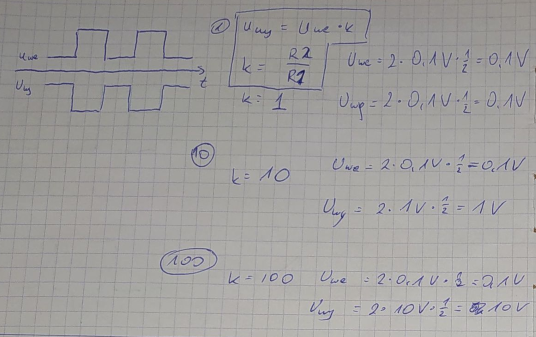 ① U_wy = U_we · k
U_we
k = R2/R1
U_we = 2 · 0,1V · 1/2 = 0,1V
U_wy
t
k = 1
U_wy = 2 · 0,1V · 1/2 = 0,1V
⑩
k = 10
U_we = 2 · 0,1V · 1/2 = 0,1V
U_wy = 2 · 1V · 1/2 = 1V
100
k = 100 U_we = 2 · 0,1V · 1/2 = 0,1V
U_wy = 2 · 10V · 1/2 = 10V